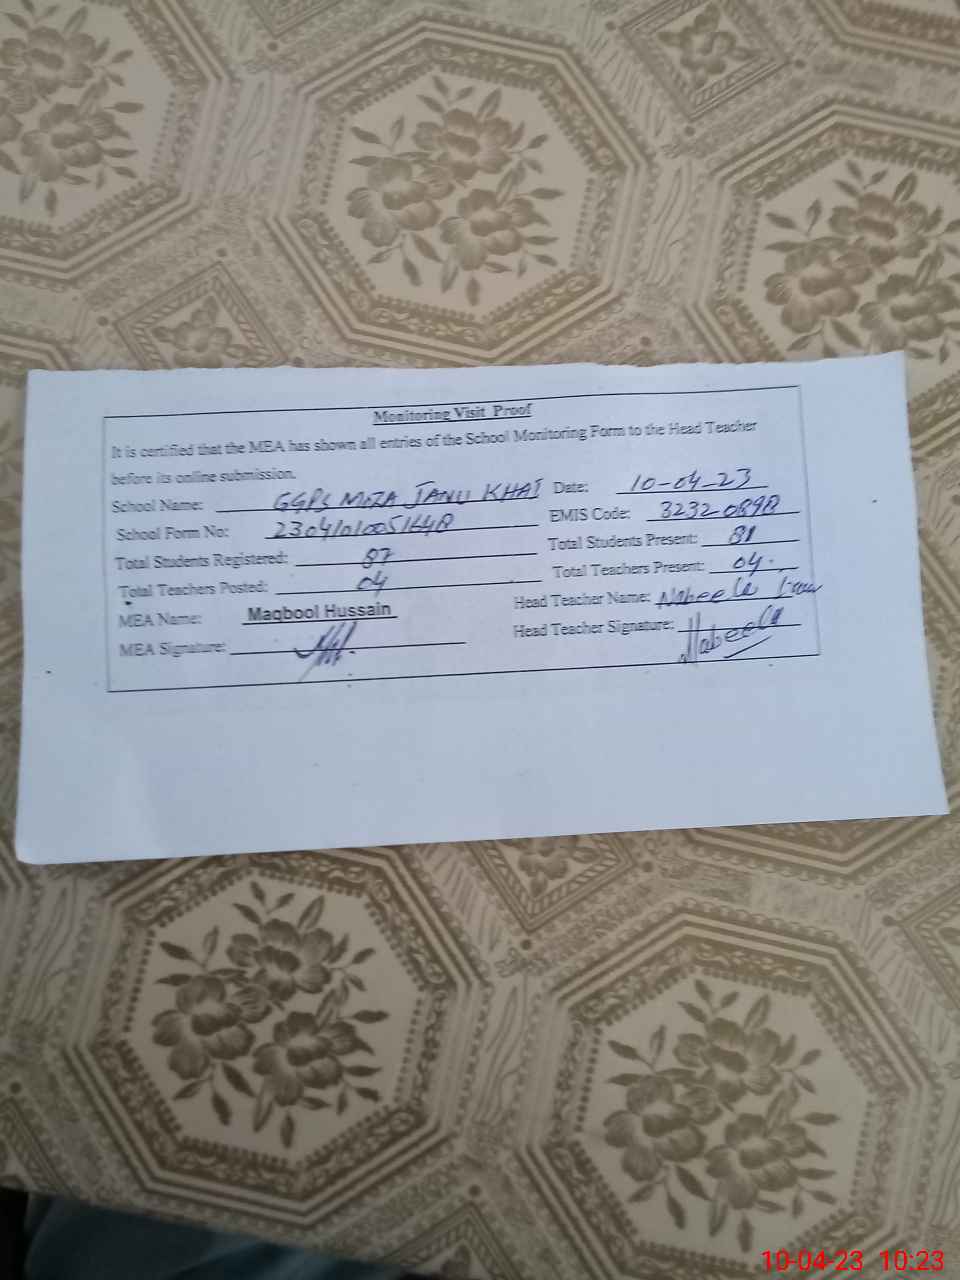 Monitoring Visit Proof
It is certified that the MEA has shown all entries of the School Monitoring Form to the Head Teacher
before its online submission.
School Name: GGPS MOZA JANU KHAI Date: 10-04-23
School Form No: EMIS Code: 3232 0898
Total Students Registered: 87 Total Students Present: 81
Total Teachers Posted: 04 Total Teachers Present: 04
MEA Name: Maqbool Hussain Head Teacher Name: Nabeela
MEA Signature: Head Teacher Signature: Nabeela
10-04-23 10:23